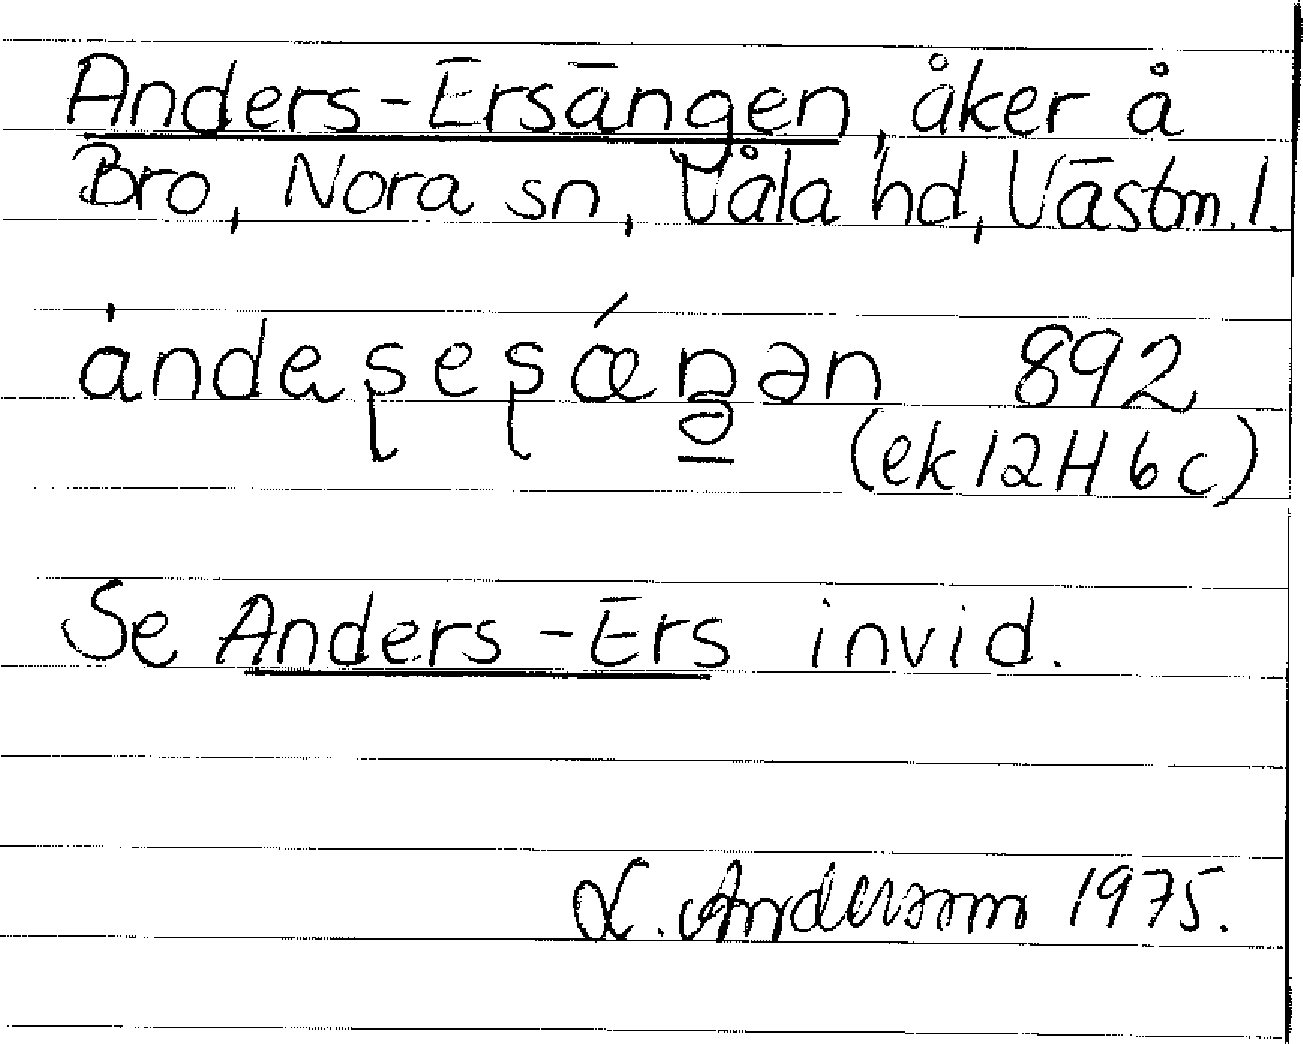 Anders-Ersängen, åker å
Bro, Nora sn, Våla hd, Västm. l.
ándaʂeʂǽŋən 892
(ek 12H 6c)
Se Anders-Ers invid.
L. Andersson 1975.